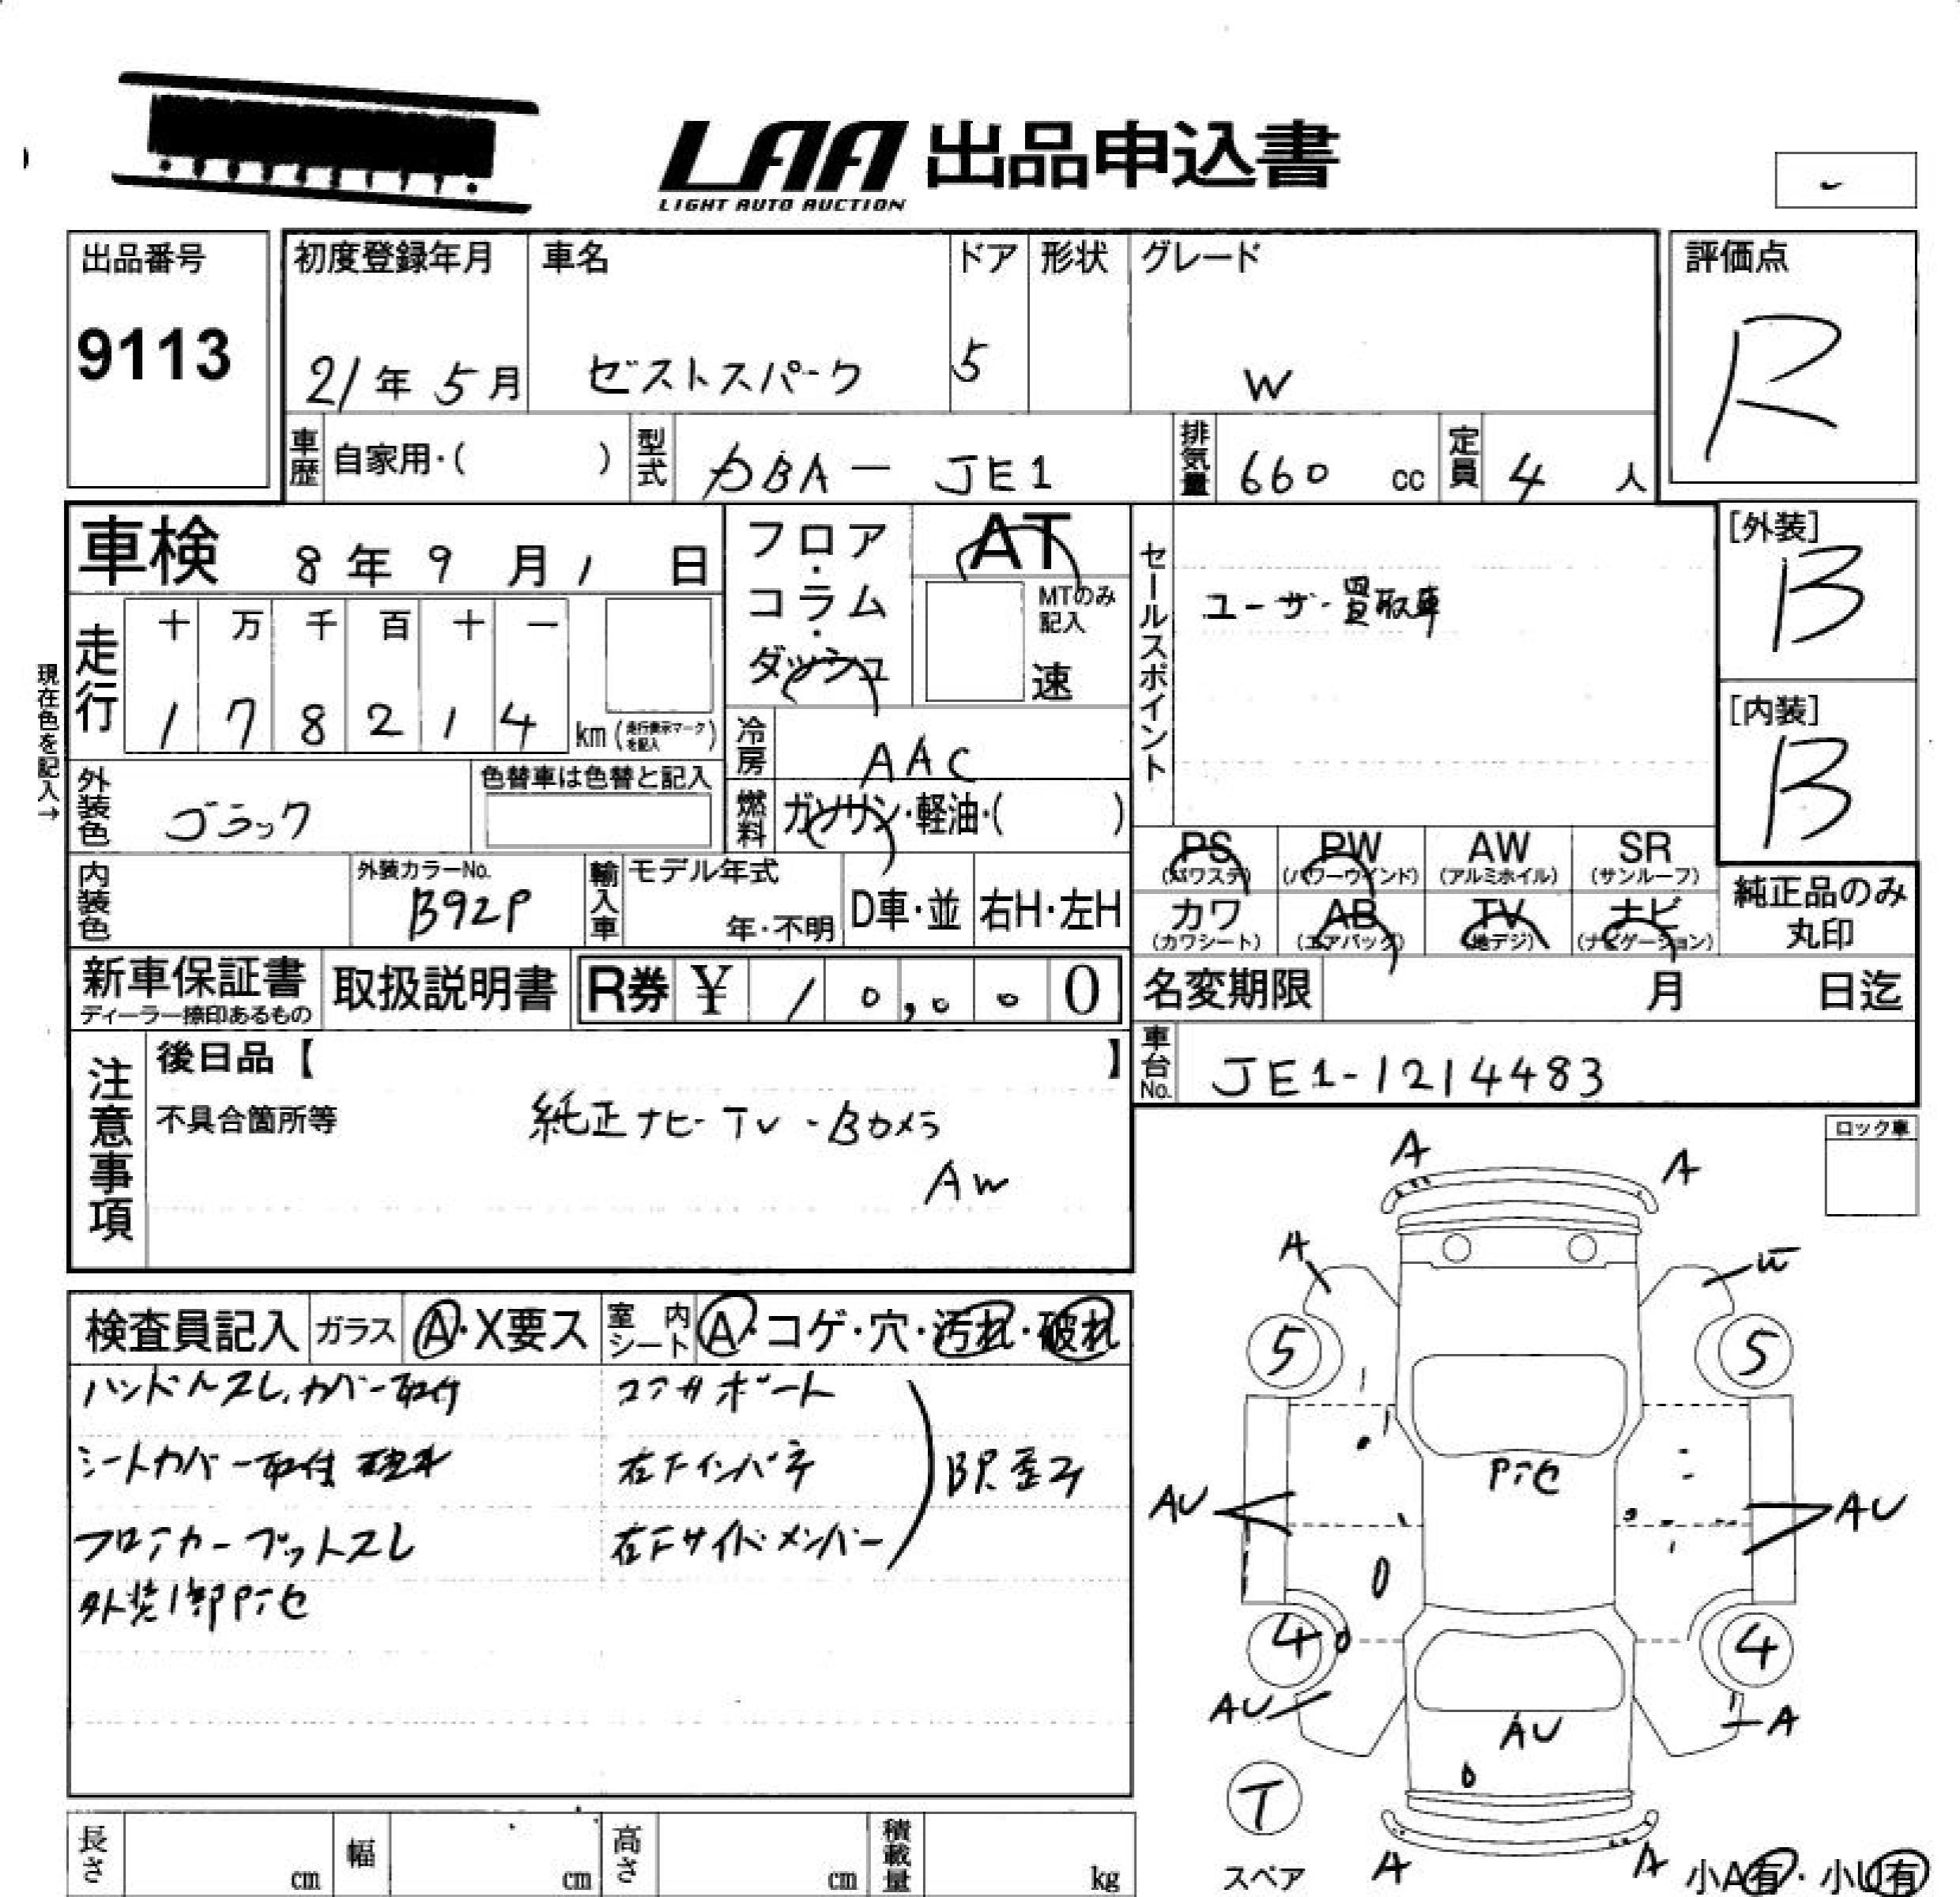 LAA 出品申込書
LIGHT AUTO AUCTION
出品番号
9113
初度登録年月
21年 5月
車名
ゼストスパーク
ドア
5
形状
グレード
W
評価点
R
車歴 自家用・( )
型式 DBA - JE1
排気量 660 cc
定員 4 人
車検 8年 9月 1日
フロア・コラム・ダッシュ
AT
MTのみ記入
速
セールスポイント
ユーザー買取車
[外装]
B
[内装]
B
現在色を記入→
走行
十 万 千 百 十 一
1 7 8 2 1 4 km (走行表示マークを記入)
冷房 AAC
外装色 ブラック
色替車は色替と記入
燃料 ガソリン・軽油・( )
PS (パワステ)
PW (パワーウインド)
AW (アルミホイル)
SR (サンルーフ)
カワ (カワシート)
AB (エアバッグ)
TV (地デジ)
ナビ (ナビゲーション)
純正品のみ丸印
内装色
外装カラーNo.
B92P
輸入車
モデル年式
年・不明
D車・並
右H・左H
新車保証書
ディーラー捺印あるもの
取扱説明書
R券 ¥ 10,000
名変期限 月 日迄
車台No. JE1-1214483
注意事項
後日品【 】
不具合箇所等
純正ナビ-TV-Bカメラ
AW
ロック車
検査員記入
ガラス A・X要ス
室内シート A・コゲ・穴・汚れ・破れ
ハンドルスレ、カバー取付
シートカバー取付
フロアカーペットスレ
外装1部P
コアサポート
右Fインパネ
右Fサイドメンバー
A
A
A
W
5
5
AU
AU
4
4
AU
A
AU
T
スペア
A
A
小A有・小U有
長さ cm
幅 cm
高さ cm
積載量 kg